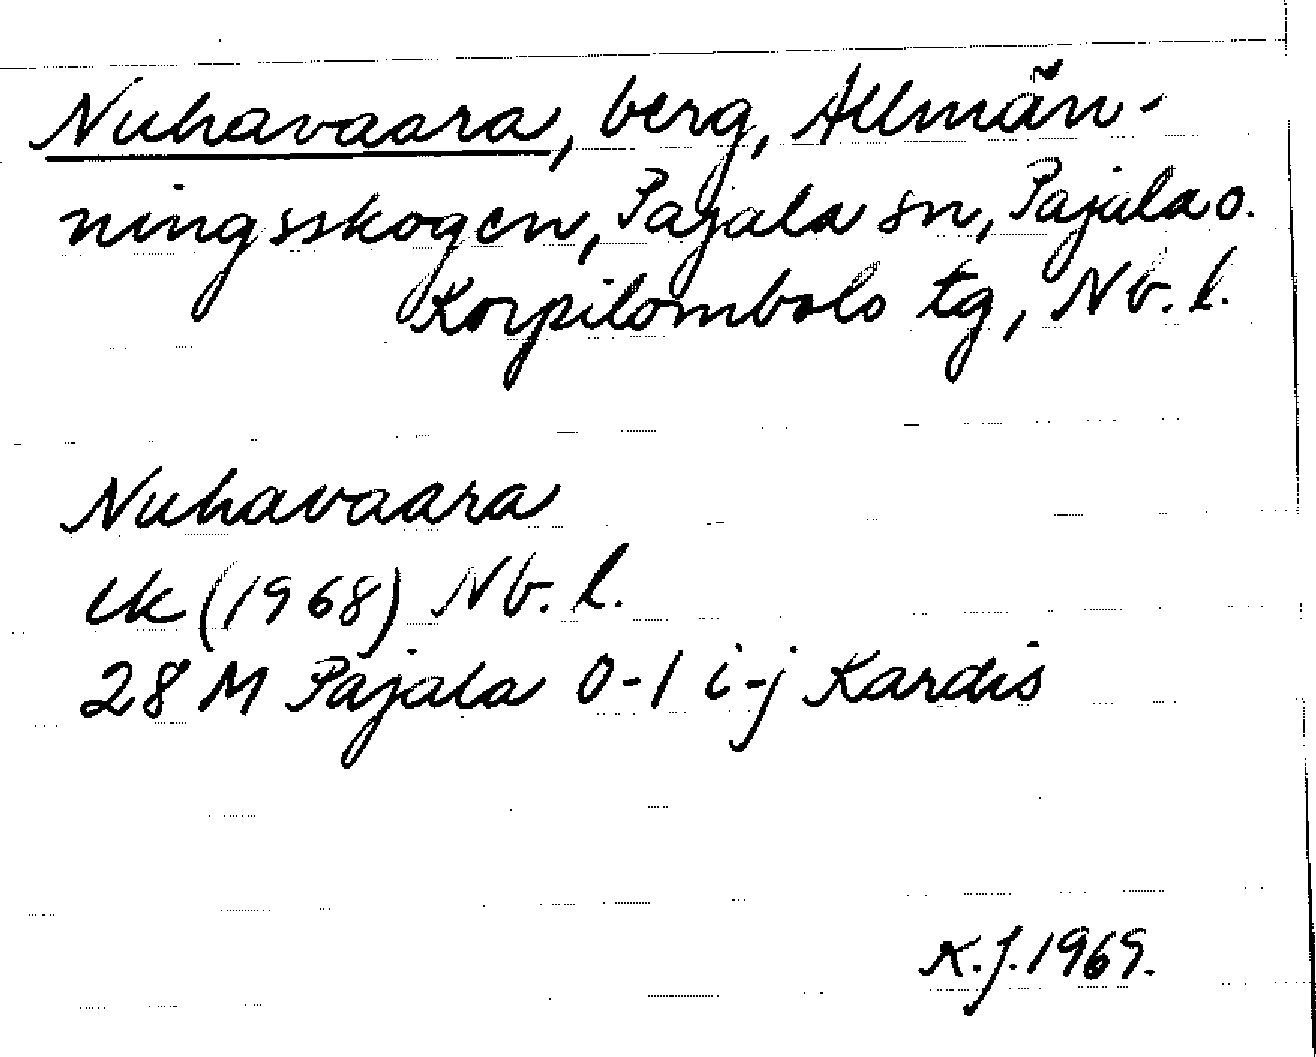 Nuhavaara, berg, Allmän-
ningsskogen, Pajala sn, Pajala o.
Korpilombolo tg, Nb. l.
Nuhavaara
ek (1968) Nb. l.
28 M Pajala 0-1 i-j Kardis
K.J. 1969.